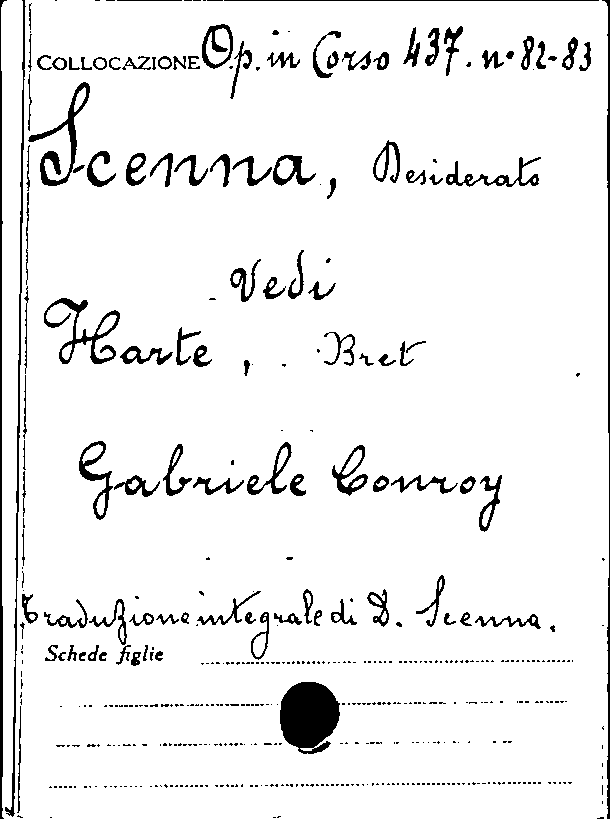 COLLOCAZIONE Op. in Corso 437. n. 82-83
Scenna, Desiderato
Vedi
Harte, Bret
Gabriele Conroy
Traduzione integrale di D. Scenna.
Schede figlie